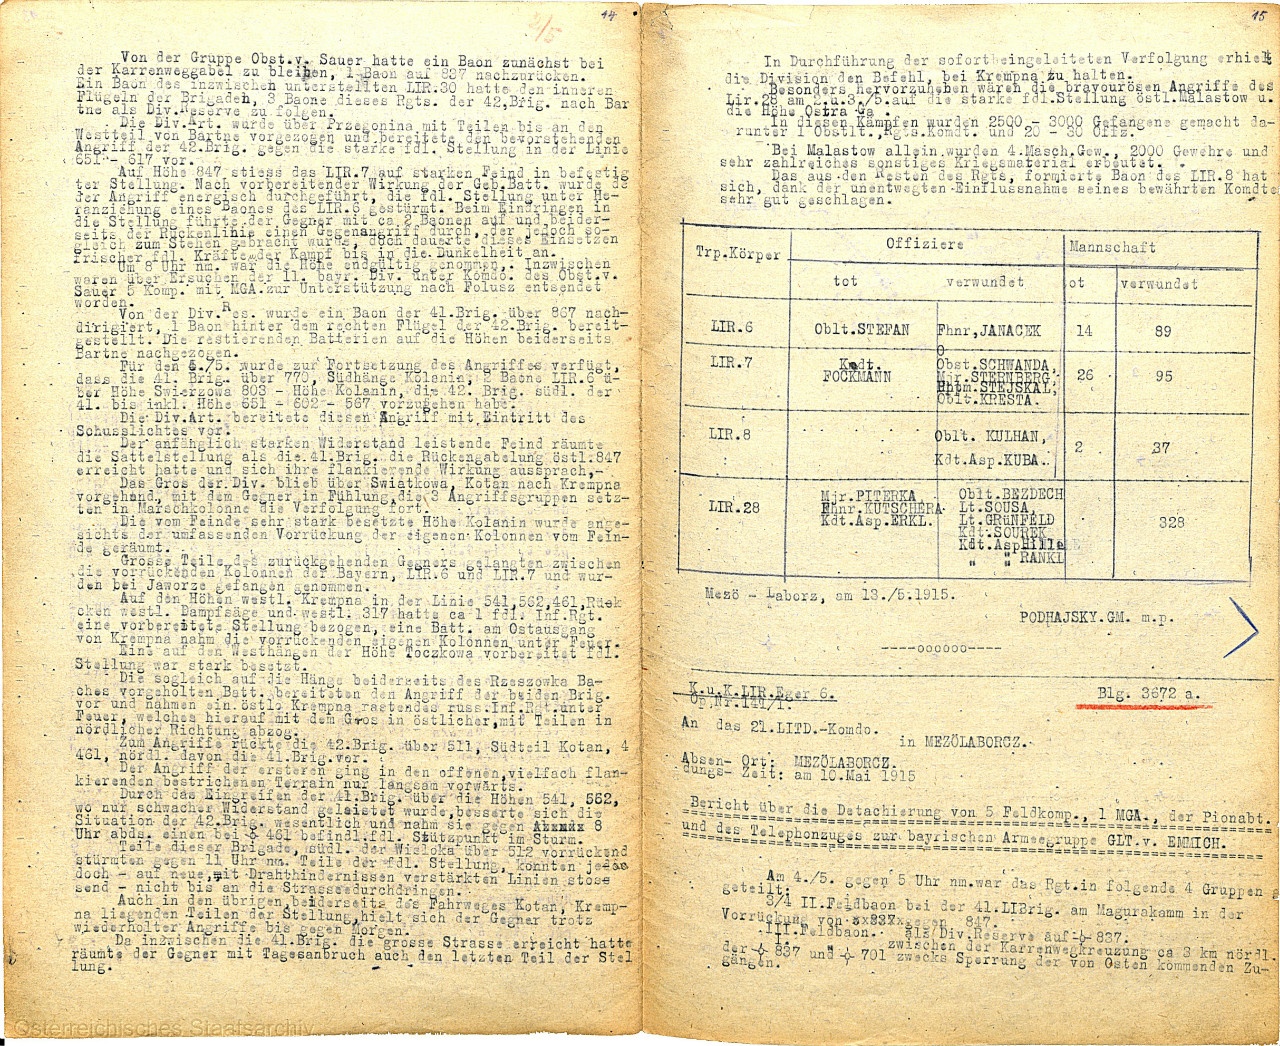 14
2/5
Von der Gruppe Obst.v. Sauer hatte ein Baon zunächst bei
der Karrenweggabel zu bleiben, 1 Baon auf 837 nachzurücken.
Ein Baon des inzwischen unterstellten LIR.30 hatte den inneren
Flügeln der Brigaden, 3 Baone dieses Rgts. der 42.Brig. nach Bar
tne als Div.Reserve zu folgen.
Die Div.Art. wurde über Przegonina mit Teilen bis an den
Westteil von Bartne vorgezogen und bereitete den bevorstehenden
Angriff der 42.Brig. gegen die starke fdl. Stellung in der Linie
651 - 617 vor.
Auf Höhe 847 stiess das LIR.7 auf starken Feind in befestig
ter Stellung. Nach vorbereitender Wirkung der Geb.Batt. wurde de
der Angriff energisch durchgeführt, die fdl. Stellung unter He-
ranziehung eines Baones des LIR.6 gestürmt. Beim Eindringen in
die Stellung führte der Gegner mit ca 2 Baonen auf und beider-
seits der Rückenlinie einen Gegenangriff durch, der jedoch so-
gleich zum Stehen gebracht wurde, doch dauerte dieses Einsetzen
frischer fdl. Kräfte der Kampf bis in die Dunkelheit an.
Um 8 Uhr nm. war die Höhe endgültig genommen,. Inzwischen
waren über Ersuchen der 11. bayr. Div. unter Komdo. des Obst.v.
Sauer 5 Komp. mit MGA.zur Unterstützung nach Folusz entsendet
worden.
Von der Div.Res. wurde ein Baon der 41.Brig. über 867 nach-
dirigiert, 1 Baon hinter dem rechten Flügel der 42.Brig. bereit-
gestellt. Die restierenden Batterien auf die Höhen beiderseits
Bartne nachgezogen.
Für den 6./5. wurde zur Fortsetzung des Angriffes verfügt,
dass die 41. Brig. über 770, Südhänge Kolanin, 2 Baone LIR.6 ü-
ber Höhe Swierzowa 803 - Höhe Kolanin, die 42. Brig. südl. der
41. bis inkl. Höhe 651 - 602 - 567 vorzugehen habe.
Die Div.Art. bereitete diesen Angriff mit Eintritt des
Schusslichtes vor.
Der anfänglich starken Widerstand leistende Feind räumte
die Sattelstellung als die 41.Brig. die Rückengabelung östl.847
erreicht hatte und sich ihre flankierende Wirkung aussprach,-
Das Gros der Div. blieb über Swiatkowa, Kotan nach Krempna
vorgehend, mit dem Gegner in Fühlung,die 3 Angriffsgruppen setz-
ten in Marschkolonne die Verfolgung fort.
Die vom Feinde sehr stark besetzte Höhe Kolanin wurde ange-
sichts der umfassenden Vorrückung der eigenen Kolonnen vom Fein-
de geräumt.
Grosse Teile des zurückgehenden Gegners gelangten zwischen
die vorrückenden Kolonnen der Bayern, LIR.6 und LIR.7 und wur-
den bei Jaworze gefangen genommen.
Auf den Höhen westl. Krempna in der Linie 541,562,461,Rück
cken westl. Dampfsäge und westl. 317 hatte ca 1 fdl. Inf.Rgt.
eine vorbereitete Stellung bezogen, eine Batt. am Ostausgang
von Krempna nahm die vorrückenden eigenen Kolonnen unter Feuer.
Eine auf den Westhängen der Höhe Toczkowa vorbereitet fdl.
Stellung war stark besetzt.
Die sogleich auf die Hänge beiderseits des Rzeszowka Ba-
ches vorgeholten Batt. bereiteten den Angriff der beiden Brig.
vor und nahmen ein östlo Krempna rastendes russ.Inf.Rgt.unter
Feuer, welches hierauf mit dem Gros in östlicher,mit Teilen in
nördlicher Richtung abzog.
Zum Angriffe rückte die 42.Brig. über 511, Südteil Kotan, 4
461, nördl. davon die 41.Brig.vor.
Der Angriff der ersteren ging in den offenen,vielfach flan-
kierenden bestrichenen Terrain nur langsam vorwärts.
Durch das Eingreifen der 41.Brig. über die Höhen 541, 562,
wo nur schwacher Widerstand geleistet wurde,besserte sich die
Situation der 42.Brig. wesentlich und nahm sie gegen 8
Uhr abds. einen bei 461 befindl.fdl. Stützpunkt im Sturm.
Teile dieser Brigade, südl. der Wisloka über 512 vorrückend
stürmten gegen 11 Uhr nm. Teile der fdl. Stellung, konnten
doch - auf neue,mit Drahthindernissen verstärkten Linien stos
send - nicht bis an die Strassedurchdringen.
Auch in den übrigen beiderseits des Fahrweges Kotan, Kremp-
na liegenden Teilen der Stellung,hielt sich der Gegner trotz
wiederholter Angriffe bis gegen Morgen.
Da inzwischen die 41.Brig. die grosse Strasse erreicht hatte
räumte der Gegner mit Tagesanbruch auch den letzten Teil der Stel
lung.
Österreichisches Staatsarchiv
15
In Durchführung der soforteingeleiteten Verfolgung erhielt
die Division den Befehl, bei Krempna zu halten.
Besonders hervorzuheben wären die bravourösen Angriffe des
Lir.28 am 2.u.3./5.auf die starke fdl.Stellung östl.Malastow u.
die Höhe Ostra Ga .
In diesen Kämpfen wurden 2500 - 3000 Gefangene gemacht da-
runter 1 Obstlt.,Rgts.Komdt. und 20 - 30 Offiz.
Bei Malastow allein wurden 4.Masch.Gew., 2000 Gewehre und
sehr zahlreiches sonstiges Kriegsmaterial erbeutet.
Das aus den Resten des Rgts, formierte Baon des LIR.8 hat
sich, dank der unentwegten Einflussnahme seines bewährten Komdte
sehr gut geschlagen.
Trp.Körper Offiziere Mannschaft
tot verwundet tot verwundet
LIR.6 Oblt.STEFAN Fhnr,JANACEK 14 89
LIR.7 Kadt. FOCKMANN Obst.SCHWANDA, 26 95
Mjr.STERNBERG,
Hptm.STEJSKAL,
Oblt.KRESTA.
LIR.8 Oblt. KULHAN, 2 37
Kdt.Asp.KUBA.
LIR.28 Mjr.PITERKA Oblt.BEZDECH 328
Fhnr.KUTSCHERA Lt.SOUSA,
Kdt.Asp.ERKL. Lt.GRüNFELD
Kdt.SOUREK
Kdt.Asp.Hille
" " RANKL
Mezö - Laborz, am 13./5.1915.
PODHAJSKY.GM. m.p.
----oooooo----
K.u.K.LIR.Eger 6. Blg. 3672 a.
Op.Nr.141/1.
An das 21.LITD.-Komdo.
in MEZÖLABORCZ.
Absen- Ort: MEZÖLABORCZ.
dungs- Zeit: am 10.Mai 1915
Bericht über die Detachierung von 5 Feldkomp., 1 MGA., der Pionabt.
und des Telephonzuges zur bayrischen Armeegruppe GLT.v. EMMICH.
Am 4./5. gegen 5 Uhr nm.war das Rgt.in folgende 4 Gruppen g
geteilt:
3/4 II.Feldbaon bei der 41.LIBrig. am Magurakamm in der
Vorrückung von xx837x gegen 847.
III.Feldbaon. als Div.Reserve auf 837.
" " zwischen der Karrenwegkreuzung ca 3 km nördl.
der 837 und 701 zwecks Sperrung der von Osten kommenden Zu-
gängen.